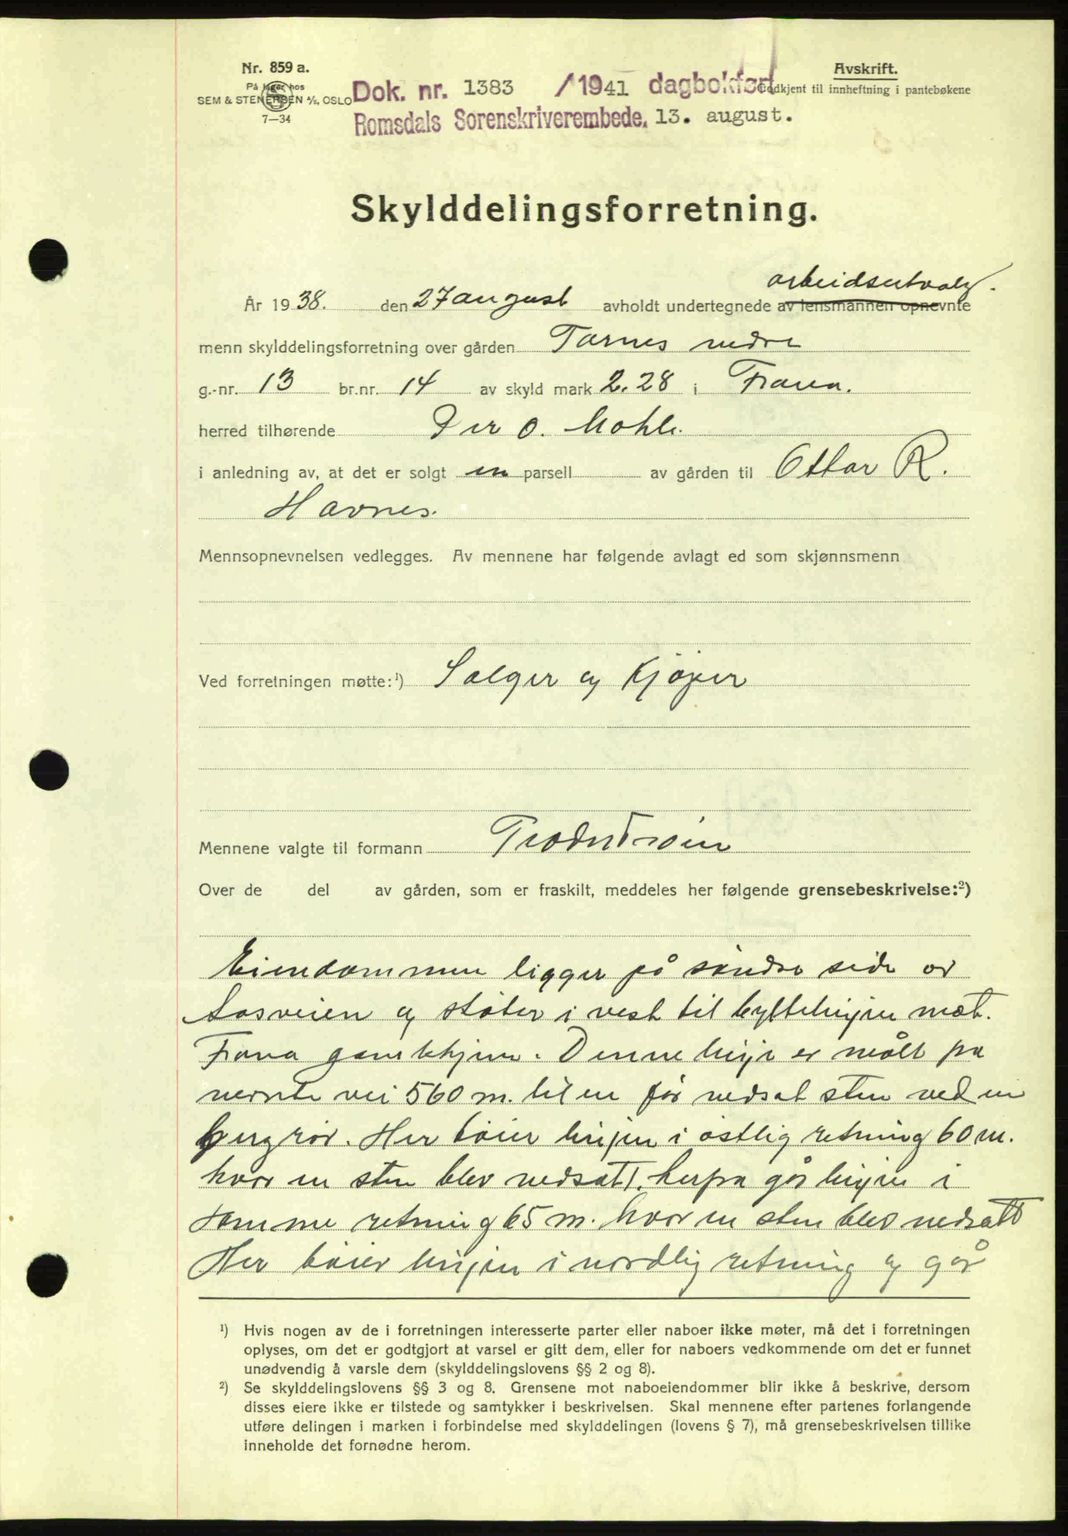 Nr. 859 a.
På lager hos
SEM & STENERSEN A/S, OSLO
7—34
Dok. nr. 1383 /1941 dagbokført
Romsdals Sorenskriverembede. 13. august.
Avskrift.
Godkjent til innheftning i pantebøkene
Skylddelingsforretning.
arbeidsutvalg.
År 1938. den 27 august avholdt undertegnede av lensmannen opnevnte
menn skylddelingsforretning over gården Tornes nedre
g.-nr. 13 br.nr. 14 av skyld mark 2.28 i Fræna.
herred tilhørende Per O. Mohle.
i anledning av, at det er solgt en parsell av gården til Ottar R.
Havnes.
Mennsopnevnelsen vedlegges. Av mennene har følgende avlagt ed som skjønnsmenn
Ved forretningen møtte:¹) Selger og Kjøper
Mennene valgte til formann
Over de del av gården, som er fraskilt, meddeles her følgende grensebeskrivelse:²)
Eiendommen ligger på søndre side av
Aasveien og støter i vest til byttelinjen mot.
Denne linje er målt fra
nevnte vei 560 m. til en før nedsat sten ved en
bergrøs. Her bøier linjen i østlig retning 60 m.
hvor en sten blev nedsatt, herfra går linjen i
samme retning 65 m. hvor en sten blev nedsatt
Her bøier linjen i nordlig retning og går
¹) Hvis nogen av de i forretningen interesserte parter eller naboer ikke møter, må det i forretningen
oplyses, om det er godtgjort at varsel er gitt dem, eller for naboers vedkommende om det er funnet
unødvendig å varsle dem (skylddelingslovens §§ 2 og 8).
²) Se skylddelingslovens §§ 3 og 8. Grensene mot naboeiendommer blir ikke å beskrive, dersom
disses eiere ikke er tilstede og samtykker i beskrivelsen. Skal mennene efter partenes forlangende
utføre delingen i marken i forbindelse med skylddelingen (lovens § 7), må grensebeskrivelsen tillike
inneholde det fornødne herom.